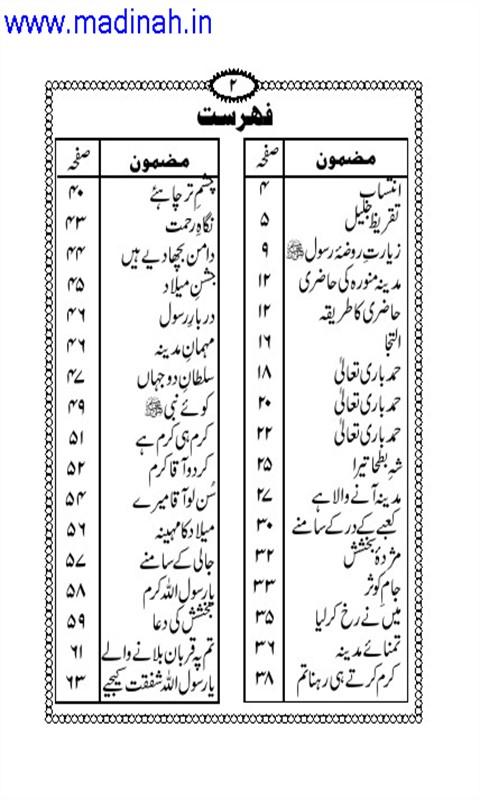 www.madinah.in
۲
فہرست
مضمون صفحہ
انتساب ۴
تقریظِ جلیل ۵
زیارتِ روضۂ رسول ﷺ ۹
مدینہ منورہ کی حاضری ۱۲
حاضری کا طریقہ ۱۲
التجا ۱۶
حمد باری تعالیٰ ۱۸
حمد باری تعالیٰ ۲۰
حمد باری تعالیٰ ۲۲
شہِ بطحا تیرا ۲۵
مدینہ آنے والا ہے ۲۷
کعبے کے در کے سامنے ۳۰
مژدۂ بخشش ۳۲
جامِ کوثر ۳۳
میں نے رخ کرلیا ۳۵
تمنائے مدینہ ۳۶
کرم کرتے ہی رہنا تم ۳۸
مضمون صفحہ
چشمِ تر چاہئے ۴۰
نگاہِ رحمت ۴۳
دامن بچھا دیے ہیں ۴۴
جشنِ میلاد ۴۵
دربارِ رسول ۴۶
مہمانِ مدینہ ۴۶
سلطانِ دو جہاں ۴۷
کوئے نبی ﷺ ۴۹
کرم ہی کرم ہے ۵۱
کردو آقا کرم ۵۲
سُن لو آقا میرے ۵۴
میلاد کا مہینہ ۵۶
جالی کے سامنے ۵۷
یارسول اللہ کرم ۵۸
بخشش کی دعا ۵۹
تم پہ قربان بلانے والے ۶۱
یارسول اللہ شفقت کیجیے ۶۳